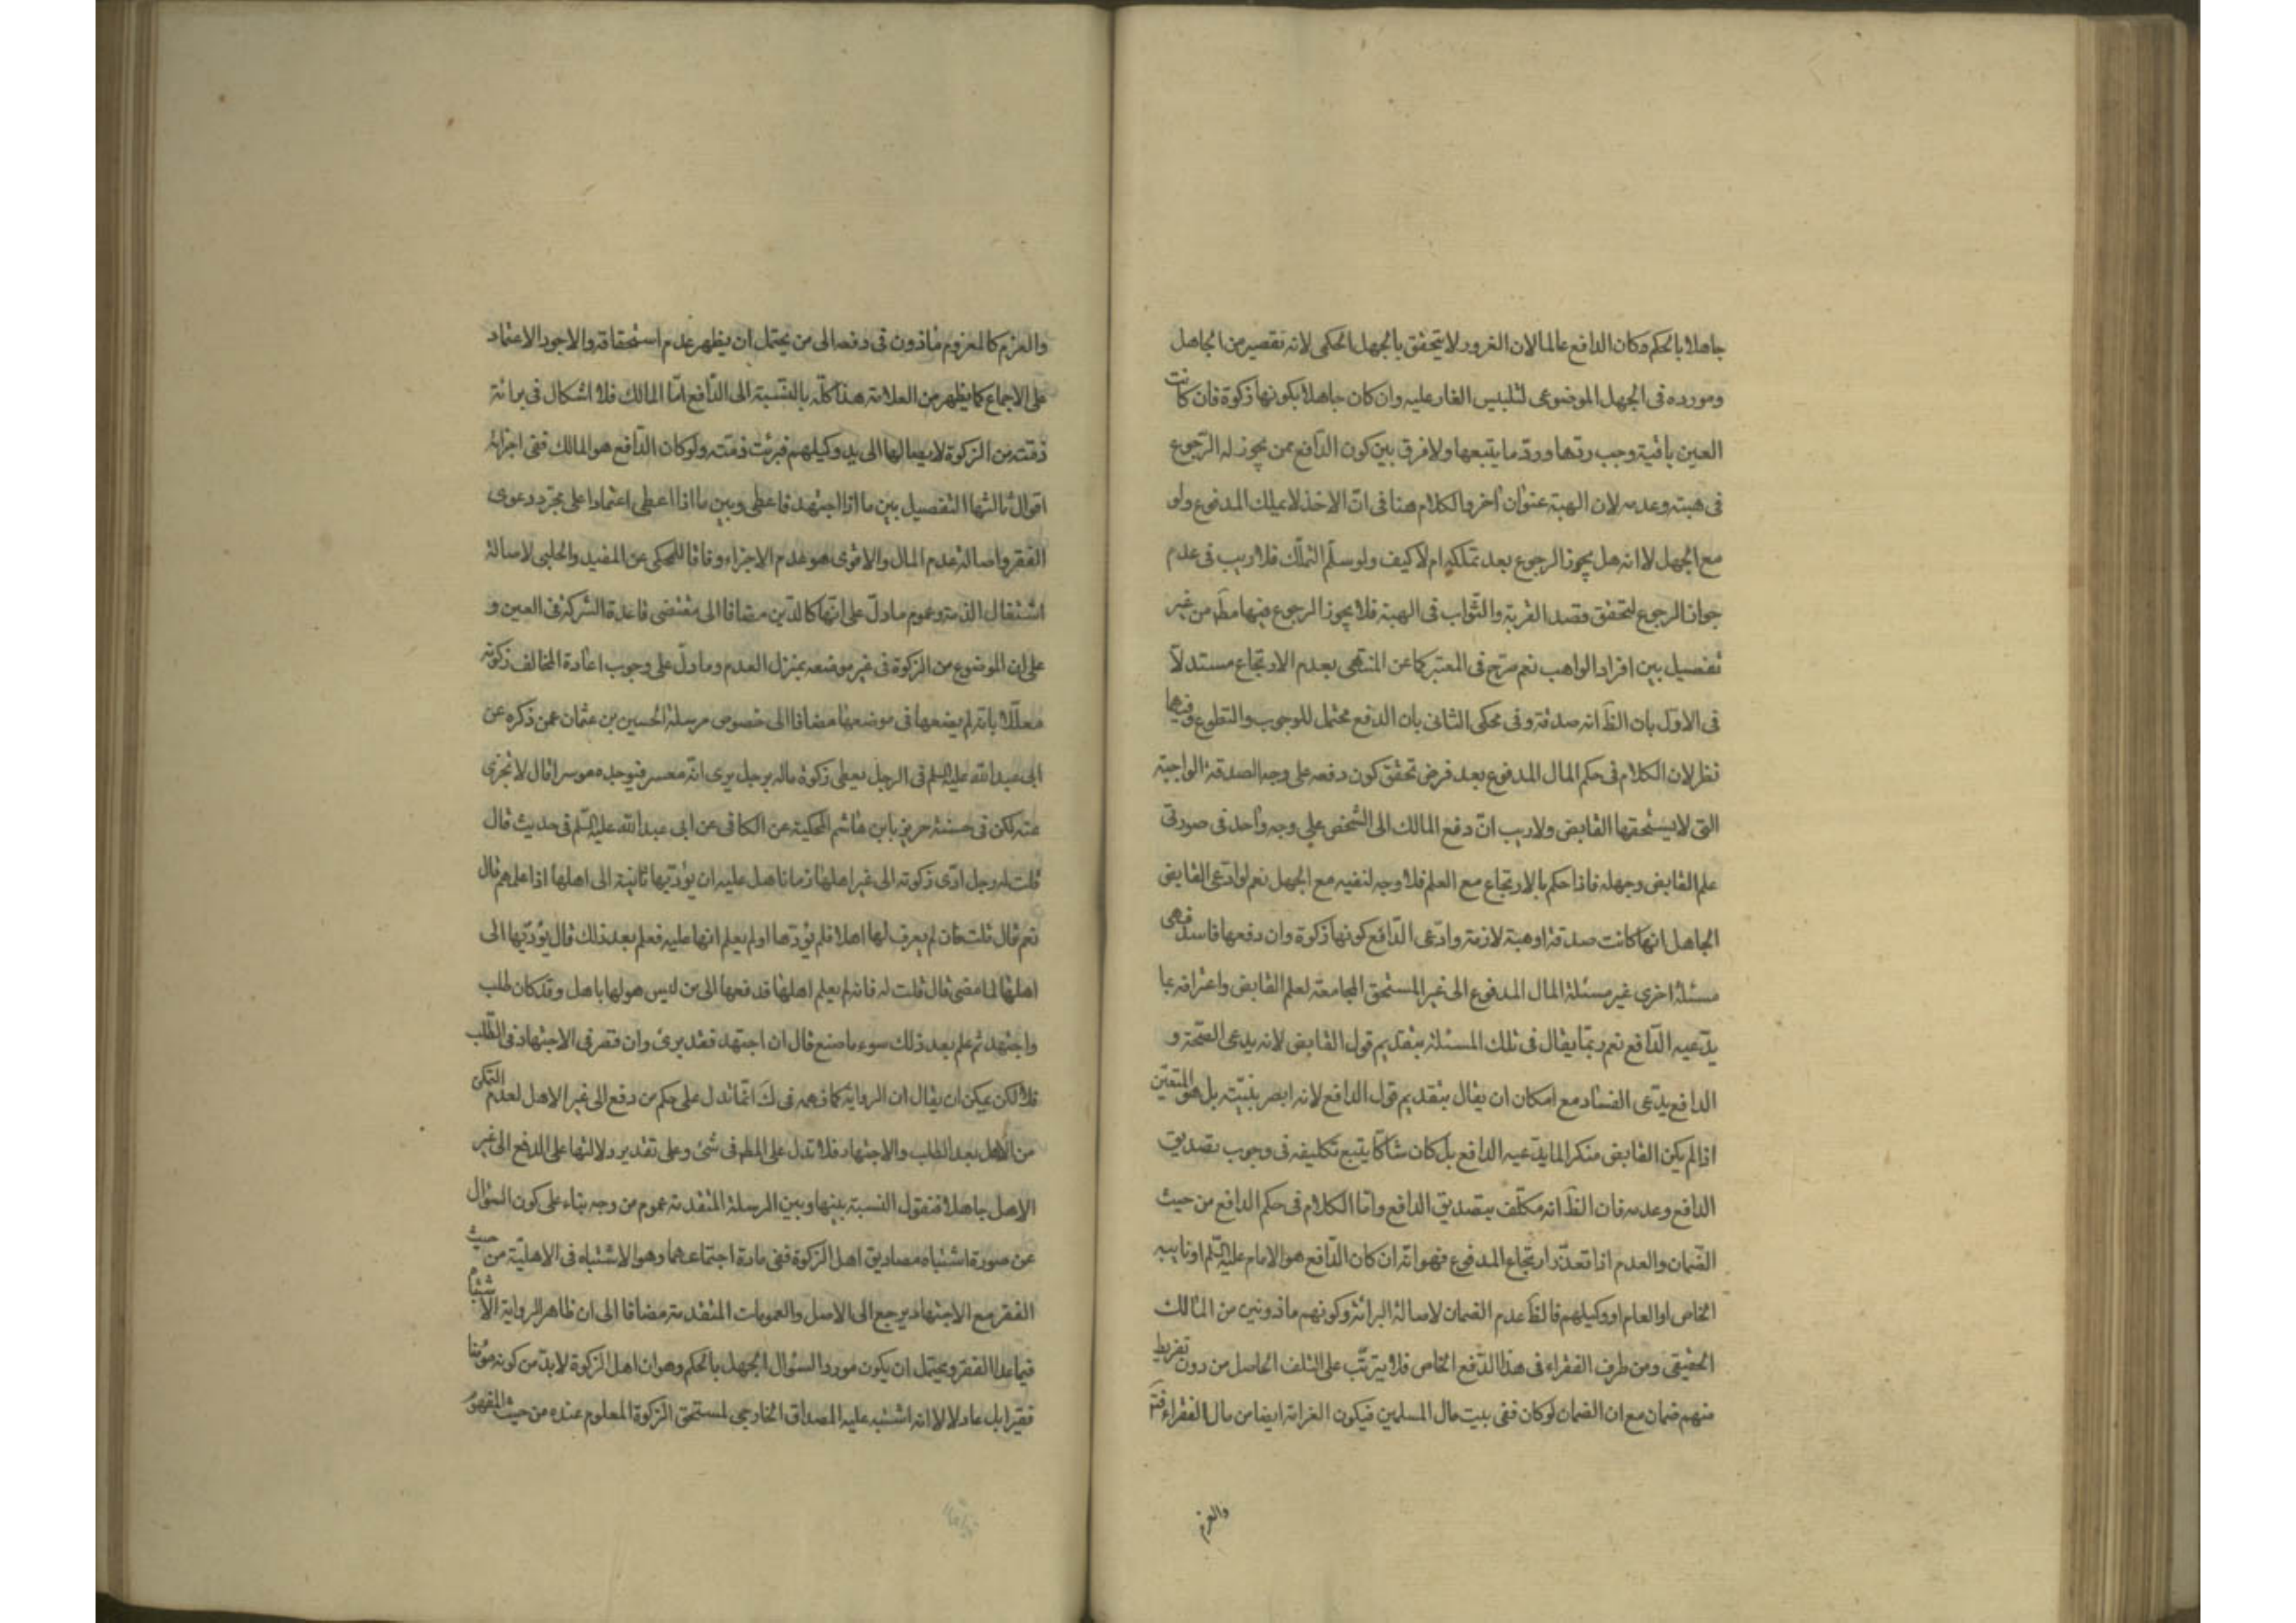 جاهلا بالحكم وكان الدافع عالما لان الغرور لا يتحقق بالجهل الحكمى لانه تقصير من الجاهل
ومورده فى الجهل الموضوعى لتلبيس الغار عليه وان كان جاهلا بكونها زكوة فان كانت
العين باقية وجب ردها ورد ما يتبعها ولا فرق بين كون الدافع ممن يجوز له الرجوع
فى هبته وعدمه لان الهبة عنوان آخر والكلام هنا فى ان الاخذ لا يملك المدفوع ولو
مع الجهل لا انه هل يجوز الرجوع بعد تملكه ام لا كيف ولو سلم التملك فلا ريب فى عدم
جواز الرجوع لتحقق قصد القربة والثواب فى الهبة فلا يجوز الرجوع فيها مط من غير
تفصيل بين افراد الواهب نعم صرح فى المعتبر كما عن المنتهى بعدم الارتجاع مستدلا
فى الاول بان الظ انه صدقة وفى محكى الثانى بان الدفع محتمل للوجوب والتطوع وفيهما
نظر لان الكلام فى حكم المال المدفوع بعد فرض تحقق كون دفعه على وجه الصدقة الواجبة
التى لا يستحقها القابض ولا ريب ان دفع المالك الى الشخص على وجه واحد فى صورتى
علم القابض وجهله فاذا حكم بالارتجاع مع العلم فلا وجه لنفيه مع الجهل نعم لو ادعى القابض
الجاهل انها كانت صدقة او هبة لازمة وادعى الدافع كونها زكوة وان دفعها فاسد فهى
مسئلة اخرى غير مسئلة المال المدفوع الى غير المستحق المجامعة لعلم القابض واعترافه بما
يدعيه الدافع نعم ربما يقال فى تلك المسئلة بتقديم قول القابض لانه يدعى الصحة و
الدافع يدعى الفساد مع امكان ان يقال بتقديم قول الدافع لانه ابصر بنيته بل هو المتعين
اذا لم يكن القابض منكرا لما يدعيه الدافع بل كان شاكا يتبع تكليفه فى وجوب تصديق
الدافع وعدمه فان الظ انه مكلف بتصديق الدافع واما الكلام فى حكم الدافع من حيث
الضمان والعدم اذا تعذر ارتجاع المدفوع فهو انه ان كان الدافع هو الامام عليه السلم او نايبه
الخاص او العام او وكيلهم فالظ عدم الضمان لاصالة البرائة وكونهم ماذونين من المالك
الحقيقى ومن طرف الفقراء فى هذا الدفع الخاص فلا يترتب على التلف الحاصل من دون تفريط
منهم ضمان مع ان الضمان لو كان ففى بيت مال المسلمين فيكون الغرامة ايضا من مال الفقراء فتم
والغرم
والغرم كالمغروم ماذون فى دفعه الى من يحتمل ان يظهر عدم استحقاقه والاجود الاعتماد
على الاجماع كما يظهر من العلامة هذا كله بالنسبة الى الدافع اما المالك فلا اشكال فى برائة
ذمته من الزكوة لايصالها الى يد وكيلهم فبرئت ذمته ولو كان الدافع هو المالك ففى اجزائه
اقوال ثالثها التفصيل بين ما اذا اجتهد فاعطى وبين ما اذا اعطى اعتمادا على مجرد دعوى
الفقر واصالة عدم المال والاقوى هو عدم الاجزاء وفاقا للمحكى عن المفيد والحلبى لاصالة
اشتغال الذمة وعموم ما دل على انها كالدين مضافا الى مقتضى قاعدة الشركة فى العين و
على ان الموضوع من الزكوة فى غير موضعه بمنزل العدم وما دل على وجوب اعادة المخالف زكوته
معللا بانه لم يضعها فى موضعها مضافا الى خصوص مرسلة الحسين بن عثمان عمن ذكره عن
ابى عبد الله عليه السلم فى الرجل يعطى زكوة ماله برجل يرى انه معسر فيوجده موسرا قال لا تجزى
عنه لكن فى حسنة حريز بابن هاشم المحكية عن الكافى عن ابى عبد الله عليه السلم فى حديث قال
قلت له رجل ادى زكوته الى غير اهلها زمانا هل عليه ان يؤديها ثانية الى اهلها اذا علمهم قال
نعم قال قلت فان لم يعرف لها اهلا فلم يؤدها او لم يعلم انها عليه فعلم بعد ذلك قال يؤديها الى
اهلها لما مضى قال قلت له فانه لم يعلم اهلها فدفعها الى من ليس هو لها باهل وقد كان طلب
واجتهد ثم علم بعد ذلك سوء ما صنع قال ان اجتهد فقد برئ وان قصر فى الاجتهاد فى الطلب
فلا لكن يمكن ان يقال ان الرواية كما فهمه فى ك انما تدل على حكم من دفع الى غير الاهل لعدم التمكن
من الاهل بعد الطلب والاجتهاد فلا تدل على المطم فى شئ وعلى تقدير دلالتها على الدفع الى غير
الاهل جاهلا فنقول النسبة بينها وبين المرسلة المتقدمة عموم من وجه بناء على كون السؤال
عن صورة اشتباه مصاديق اهل الزكوة ففى مادة اجتماعهما وهو الاشتباه فى الاهلية من حيث
الفقر مع الاجتهاد يرجع الى الاصل والعمومات المتقدمة مضافا الى ان ظاهر الرواية الاشتباه
فيما عدا الفقر ويحتمل ان يكون مورد السؤال الجهل بالحكم وهو ان اهل الزكوة لابد من كونه مؤمنا
فقيرا بل عادلا لا انه اشتبه عليه المصداق الخارجى لمستحق الزكوة المعلوم عنده من حيث المفهوم